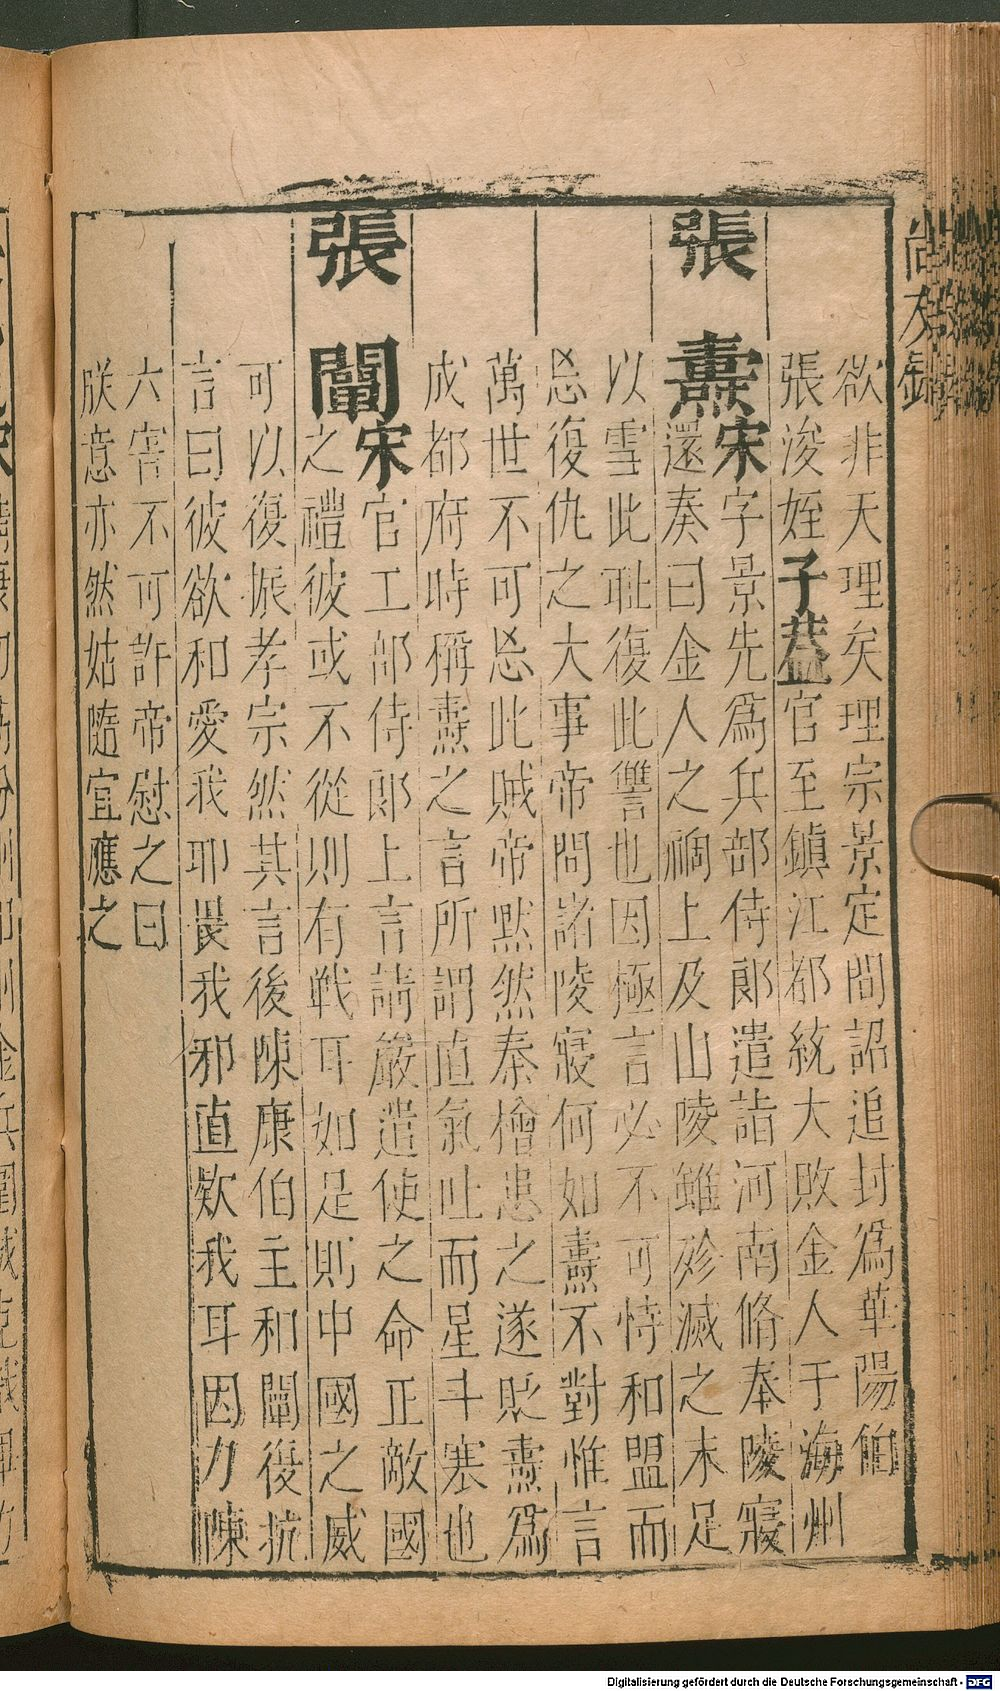 欲非天理矣理宗景定間詔追封爲華陽伯
張浚姪子葢官至鎮江都統大敗金人于海州
張燾宋字景先爲兵部侍郎遣詣河南脩奉陵寢
還奏曰金人之禍上及山陵雖殄滅之未足
以雪此耻復此讐也因極言必不可恃和盟而
忘復仇之大事帝問諸陵寢何如燾不對惟言
萬世不可忘此賊帝黙然秦檜患之遂貶燾爲
成都府時稱燾之言所謂直氣吐而星斗寒也
張闡宋官工部侍郎上言請嚴遣使之命正敵國
之禮彼或不從則有戰耳如足則中國之威
可以復振孝宗然其言後陳康伯主和闡復抗
言曰彼欲和愛我耶畏我邪直欵我耳因力陳
六害不可許帝慰之曰
朕意亦然姑隨宜應之
Digitalisierung gefördert durch die Deutsche Forschungsgemeinschaft - DFG